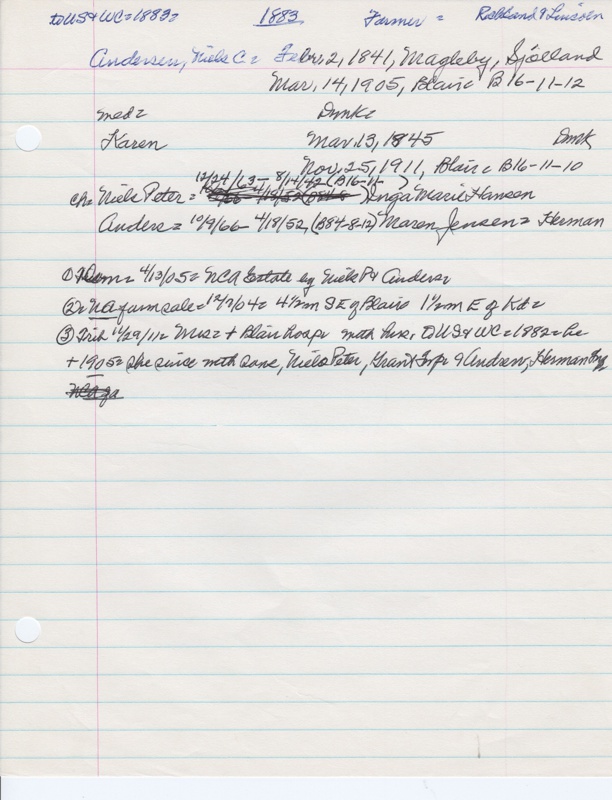 to US & WC = 1883 = 1883 Farmer = Richland & Lincoln
Andersen, Niels C = Febr, 2, 1841, Magleby, Sjölland
Mar, 14, 1905, Blair = B16-11-12
med = Dmk =
Karen Mar. 13, 1845 Dmk
Nov, 25, 1911, Blair = B16-11-10
12/24/63 - 8/14/42 (B16-11- )
ch = Niels Peter = Inga Marie Hansen
Anders = 10/9/66 - 4/18/52, (B84-8-12) Maren Jensen = Herman
① 4/13/05 = NCA Estate by Niels P & Anders =
② = NA farm sale = 12/7/04 = 4 1/2 m SE of Blair = 1 1/2 m E of
③ Trib 11/29/11 = Mrs = + Blair hosp = to US & WC = 1882 = he
+ 1905 = she since with sons, Niels Peter, Grant Twp & Andrew, Herman